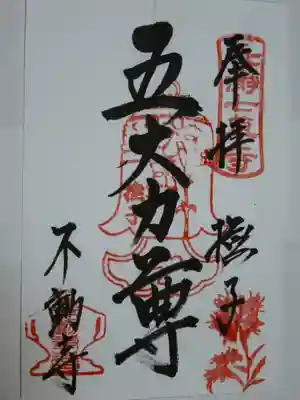 奉拝
撫子
五大力尊
不動寺